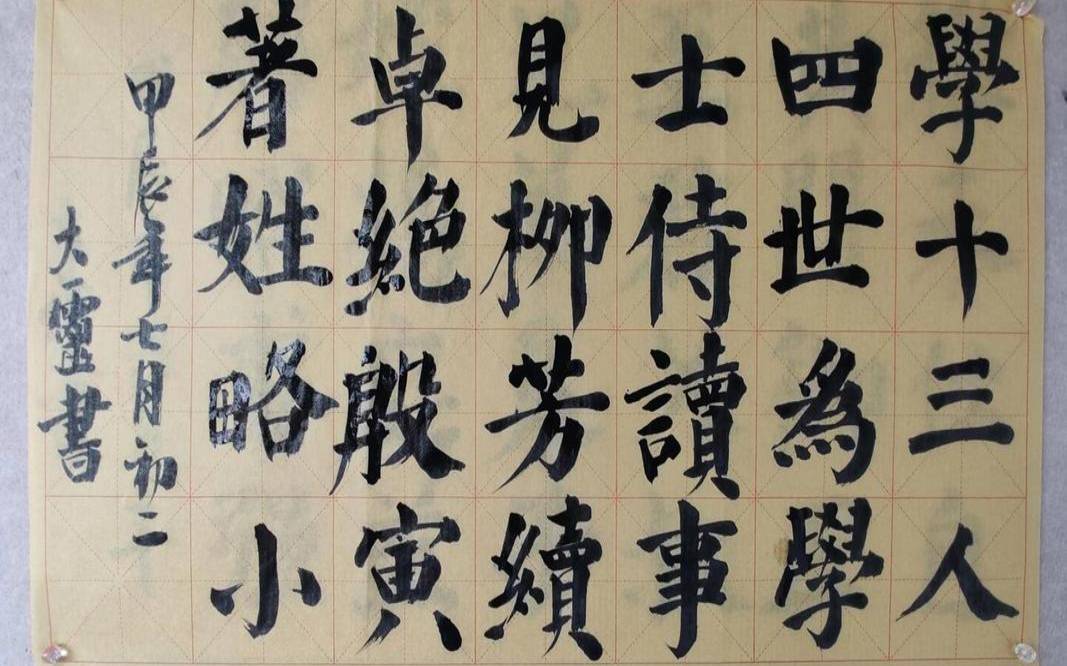 學十三人
四世為學
士侍讀事
見柳芳續
卓絕殷寅
著姓略小
甲辰年七月初二
大靈書